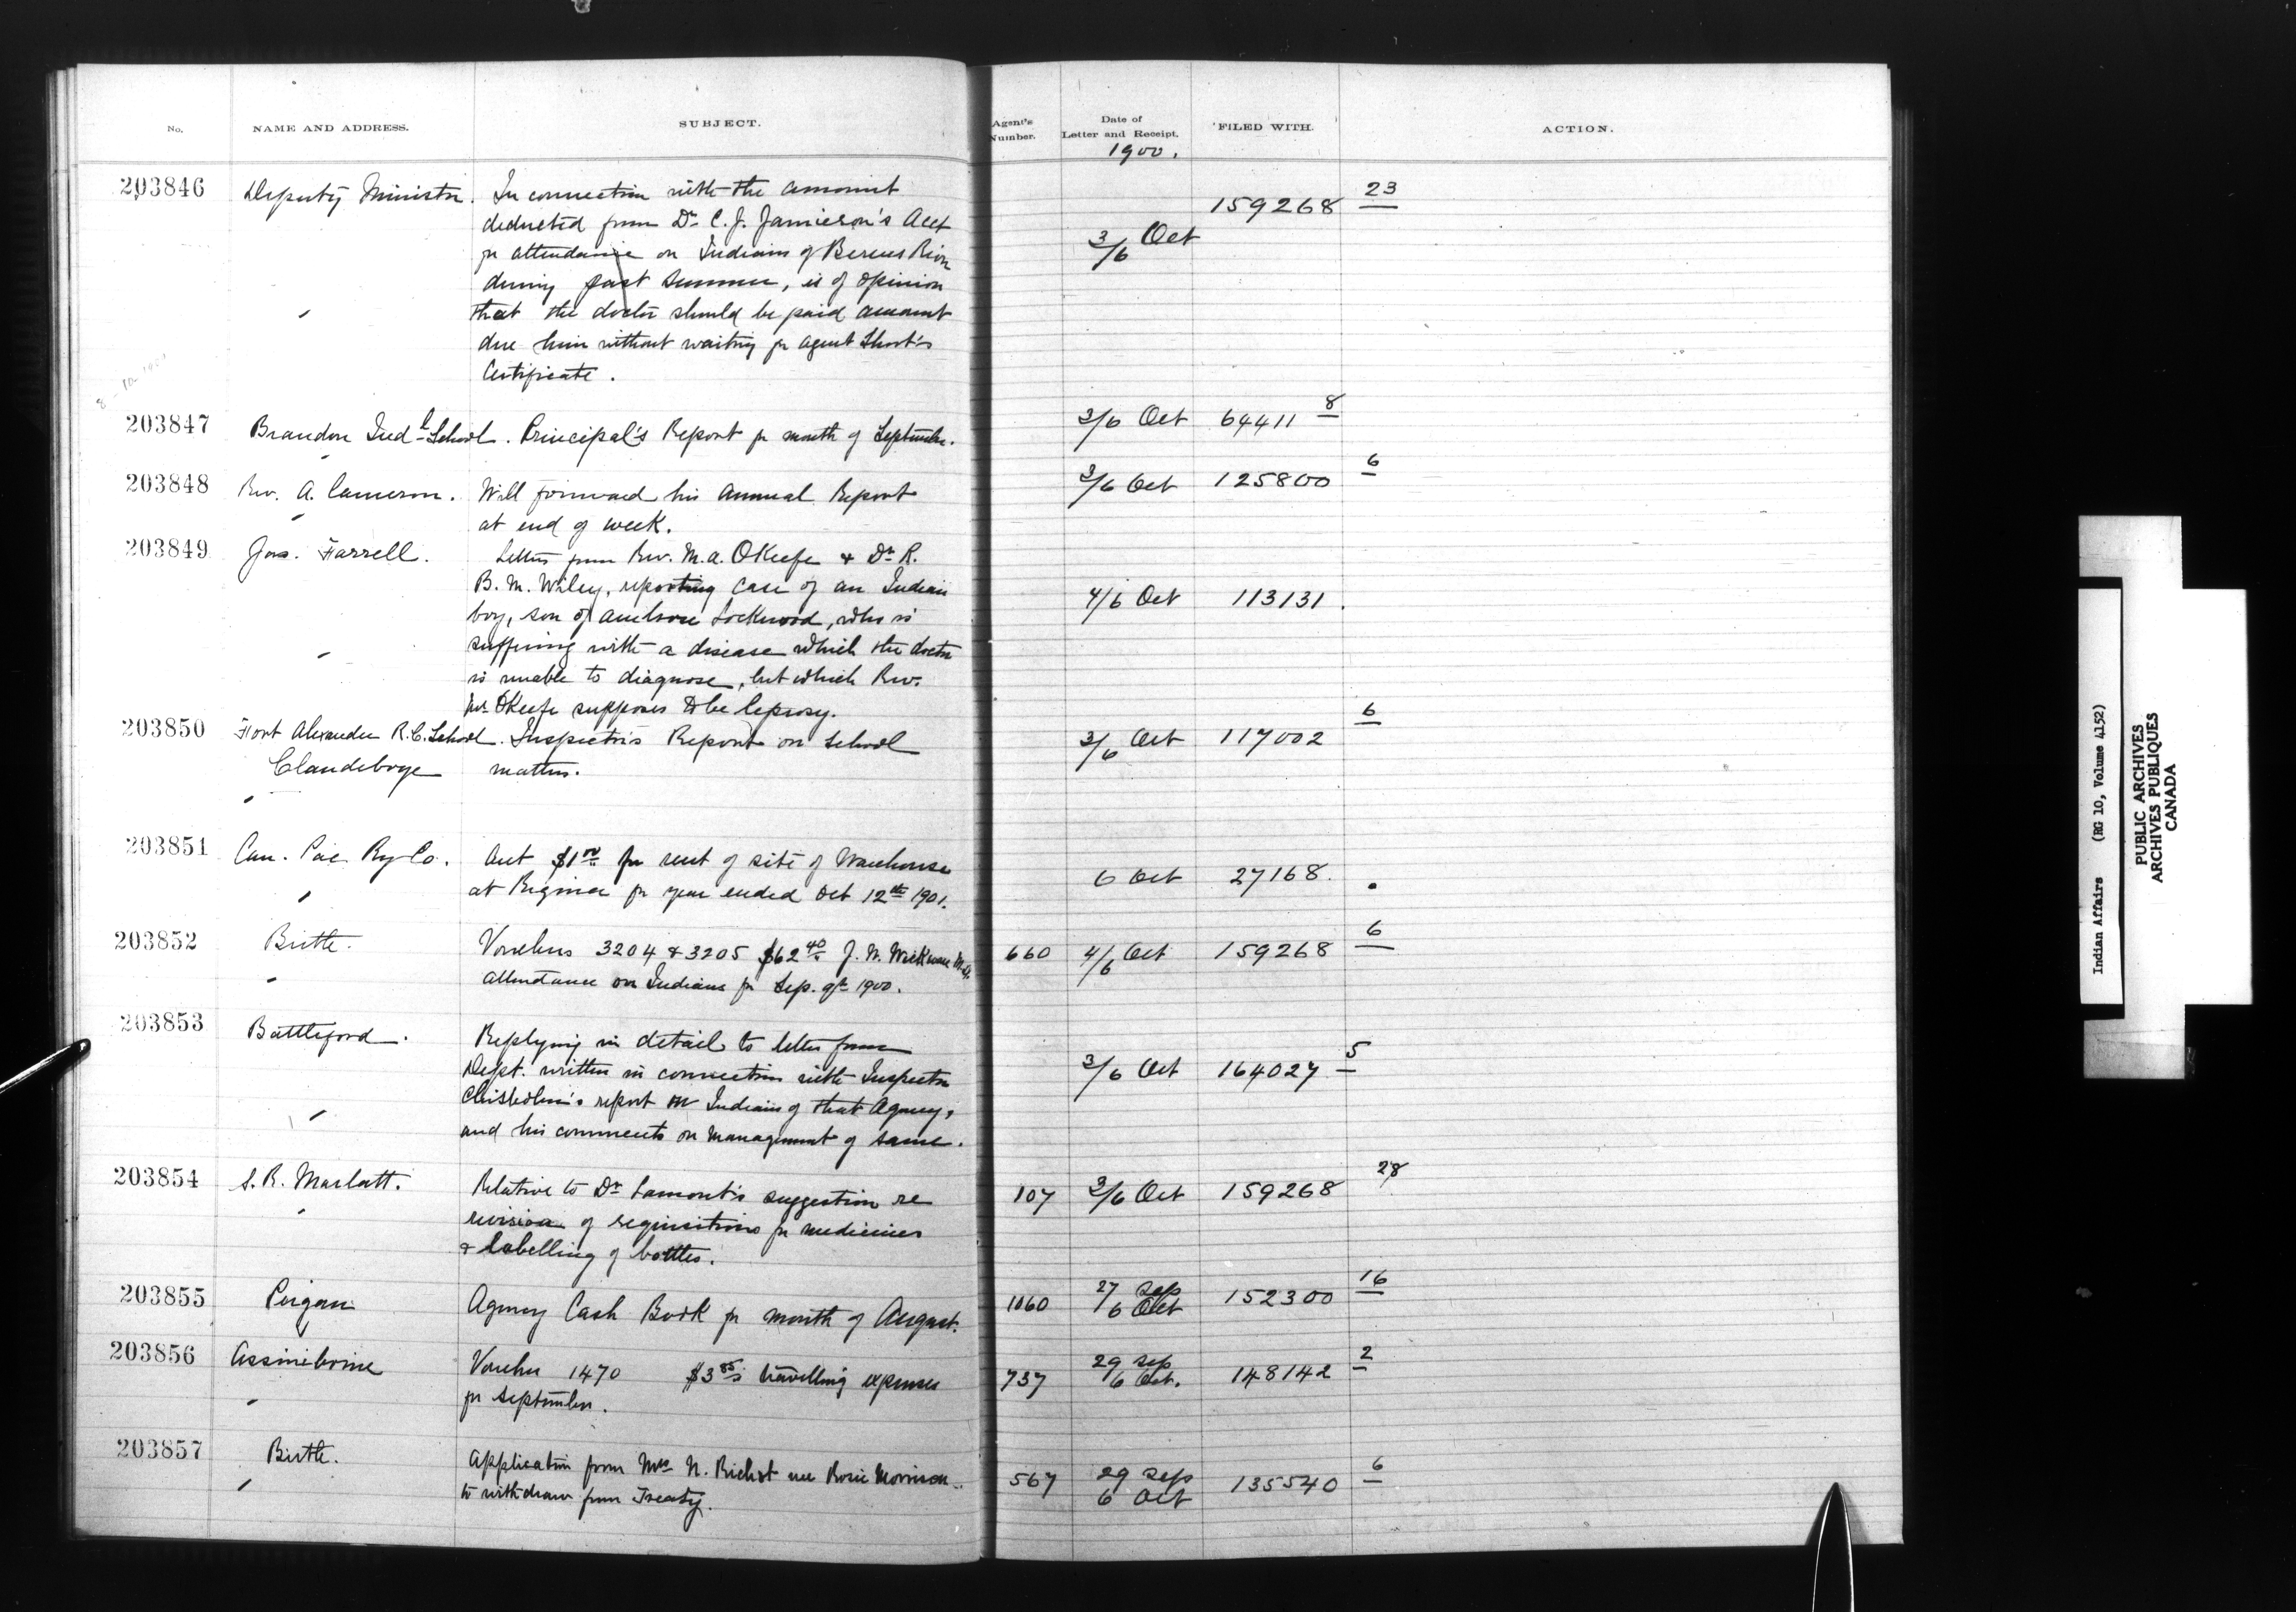 No. NAME AND ADDRESS. SUBJECT. Agent's Number. Date of Letter and Receipt. FILED WITH. ACTION.
1900.
203846 Deputy Minister. In connection with the amount 159268 23
deducted from Dr C. J. Jamieson's Acct 3/6 Oct
for attendance on Indians of Berens River
during past summer, is of opinion
that the doctor should be paid amount
due him without waiting for Agent Short's
Certificate.
203847 Brandon Indl School. Principal's Report for month of September. 3/6 Oct 64411 8
203848 Rev. A. Cameron. Will forward his Annual Report 3/6 Oct 125800 6
at end of week.
203849 Jas. Farrell. Letters from Rev. M. A. OKeefe & Dr R.
B. M. Wiley, reporting case of an Indian 4/6 Oct 113131.
boy, son of Lockwood, who is
suffering with a disease which the doctor
is unable to diagnose, but which Rev.
Mr. OKeefe supposes to be leprosy.
203850 Fort Alexander R.C. School. Inspector's Report on School 3/6 Oct 117002 6
Clandeboye matters.
203851 Can. Pac. Ry Co. Acct $1.00 for rent of site of Warehouse 6 Oct 27168.
at Regina for year ended Oct 12th 1901.
203852 Birtle. Vouchers 3204 & 3205 $62.40 J. W. Wickware M.D. 660 4/6 Oct 159268 6
attendance on Indians for Sep. qr 1900.
203853 Battleford. Replying in detail to letter from
Dept. written in connection with Inspector 3/6 Oct 164027 5
Chisholm's report on Indians of that Agency,
and his comments on management of same.
203854 S. R. Marlatt. Relative to Dr Lamont's suggestion re 107 3/6 Oct 159268 28
revision of requisitions for medicines
& labelling of bottles.
203855 Peigan Agency Cash Book for month of August. 1060 27 Sep / 6 Oct 152300 16
203856 Assiniboine Voucher 1470 $3.85 travelling expenses 737 29 Sep / 6 Oct. 148142 2
for September.
203857 Birtle. Application from Mrs N. Richot nee Rosie Morrison 567 29 Sep 135540 6
to withdraw from Treaty. 6 Oct
Indian Affairs (RG 10, Volume 4152)
PUBLIC ARCHIVES
ARCHIVES PUBLIQUES
CANADA